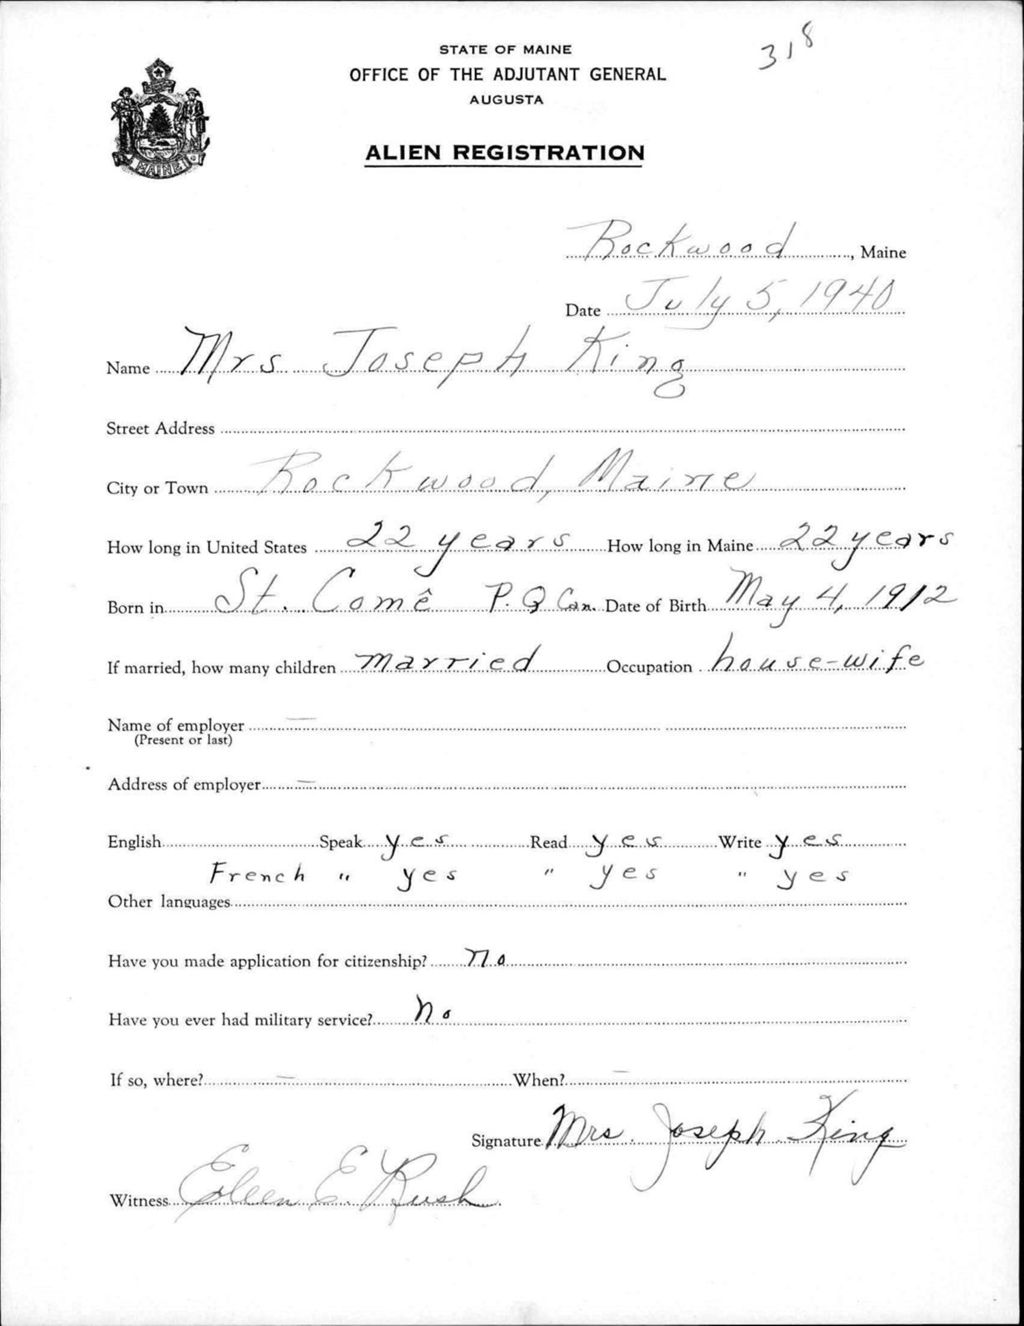 318
STATE OF MAINE
OFFICE OF THE ADJUTANT GENERAL
AUGUSTA
MAINE
ALIEN REGISTRATION
Rockwood, Maine
Date July 5, 1940
Name Mrs Joseph King
Street Address
City or Town Rockwood, Maine
How long in United States 22 years How long in Maine 22 years
Born in St. Comê P.Q Can. Date of Birth May 4, 1912
If married, how many children married Occupation house-wife
Name of employer —
(Present or last)
Address of employer —
English Speak yes Read yes Write yes
French " yes " yes " yes
Other languages
Have you made application for citizenship? no
Have you ever had military service? no
If so, where? — When? —
Signature Mrs. Joseph King
Witness Eileen E Rush